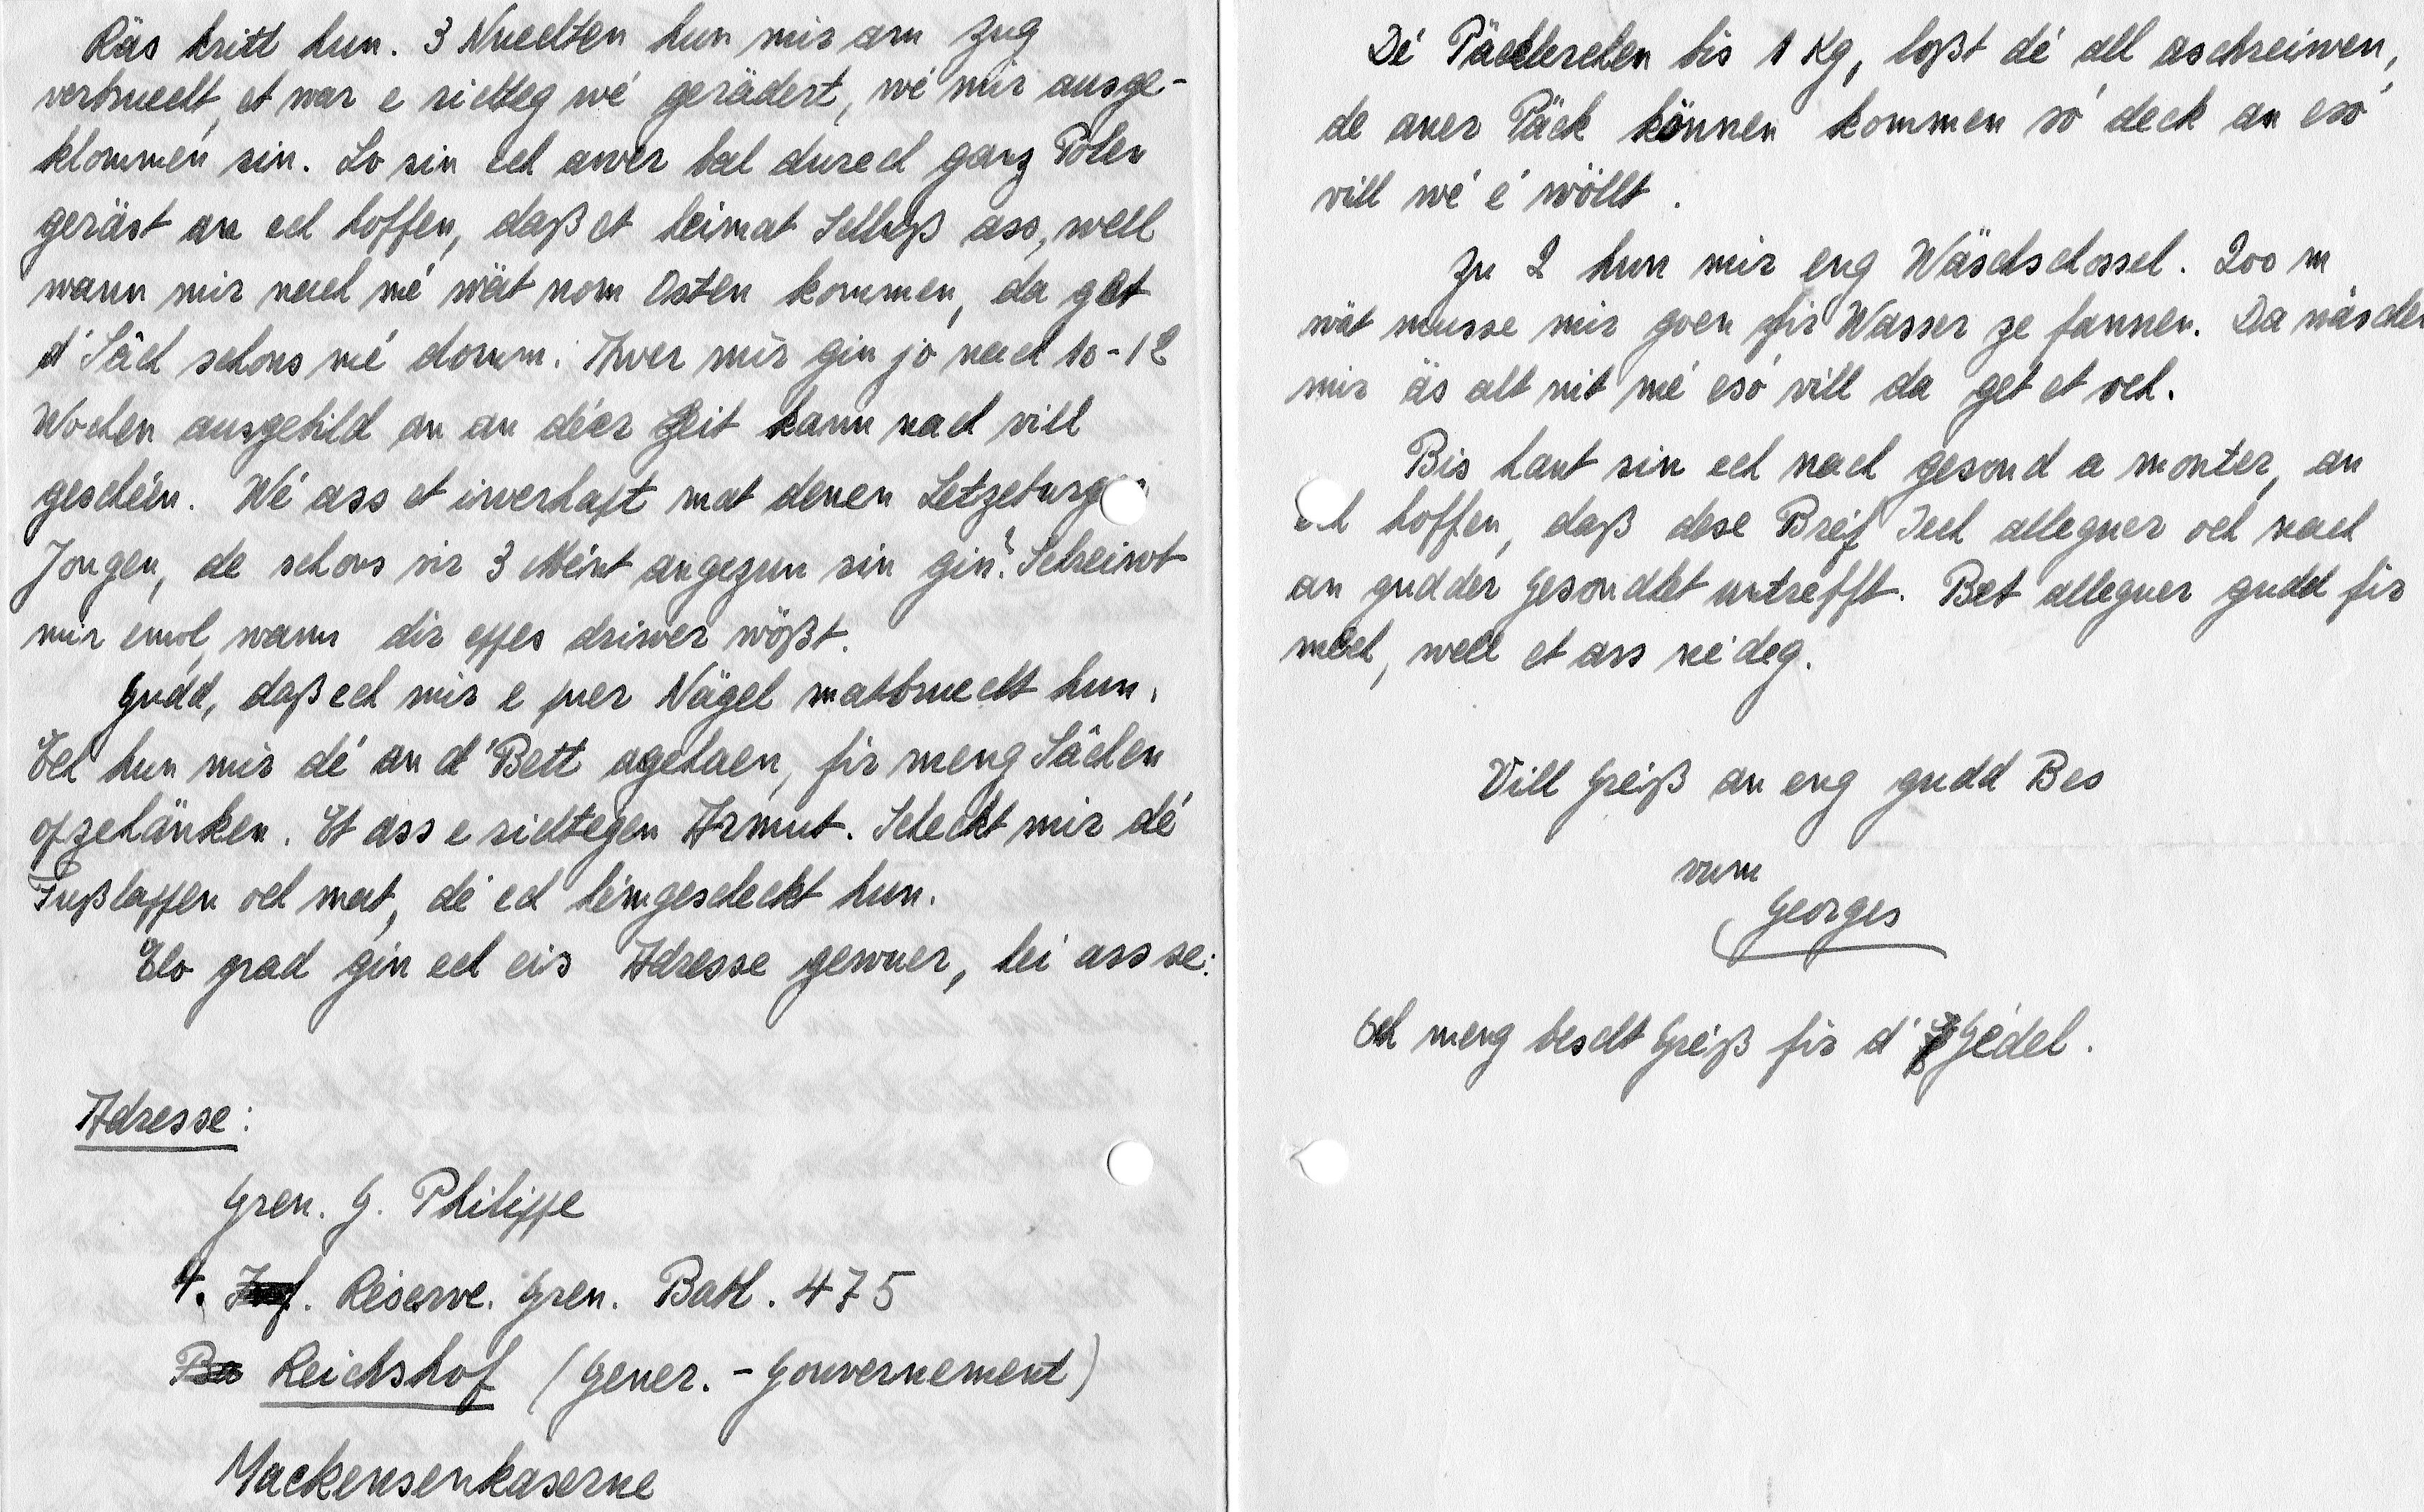 Räs hritt hun. 3 Nuechten hun mir am Zug
verbruecht, et war e richteg wé gerädert, wé mir ausge-
klommen sin. Lo sin ech awer bal durech ganz Polen
geräst an ech hoffen, daß et heimat Schluß ass, well
wann mir nach mé wät nom Osten kommen, da get
d'Säch schons mé domm. Awer mir gin jo nach 10-12
Wochen ausgebild an an déer Zeit kann nach vill
geschéin. Wé ass et iwerhaft mat denen Letzeburg
Jongen, de schons vir 3 Méint angezun sin gin? Schreiwt
mir emol, wann dir eppes driwer wößt.
Gudd, daß ech mir e puer Nägel matbruecht hun.
Ech hun mir dé an d'Bett agehaen, fir meng Sächen
opzehänken. Et ass e richtegen Armut. Scheckt mir dé
Fußlappen och mat, dé ech hémgescheckt hun.
Elo grad gin ech eis Adresse gewuer, hei ass se:
Adresse:
Gren. G. Philippe
4. Reserve. Gren. Batl. 475
Reichshof (Gener. - Gouvernement)
Mackensenkaserne
Dé Päckercher bis 1 Kg, loßt dé all aschreiwen,
de aner Päck können kommen só deck an esó
vill wé é wöllt.
Zu 2 hun mir eng Wäschschossel. 200 m
wät musse mir goen fir Wasser ze fannen. Da wäschen
mir äs alt nit mé esó vill da get et och.
Bis haut sin ech nach gesond a monter, an
ech hoffen, daß dese Bréif Iech alleguer och nach
an gudder Gesondhet untrefft. Bet alleguer gudd fir
mech, well et ass néideg.
Vill Gréiß an eng gudd Bes
vum
Georges
Och meng bescht Gréiß fir d'Gédel.